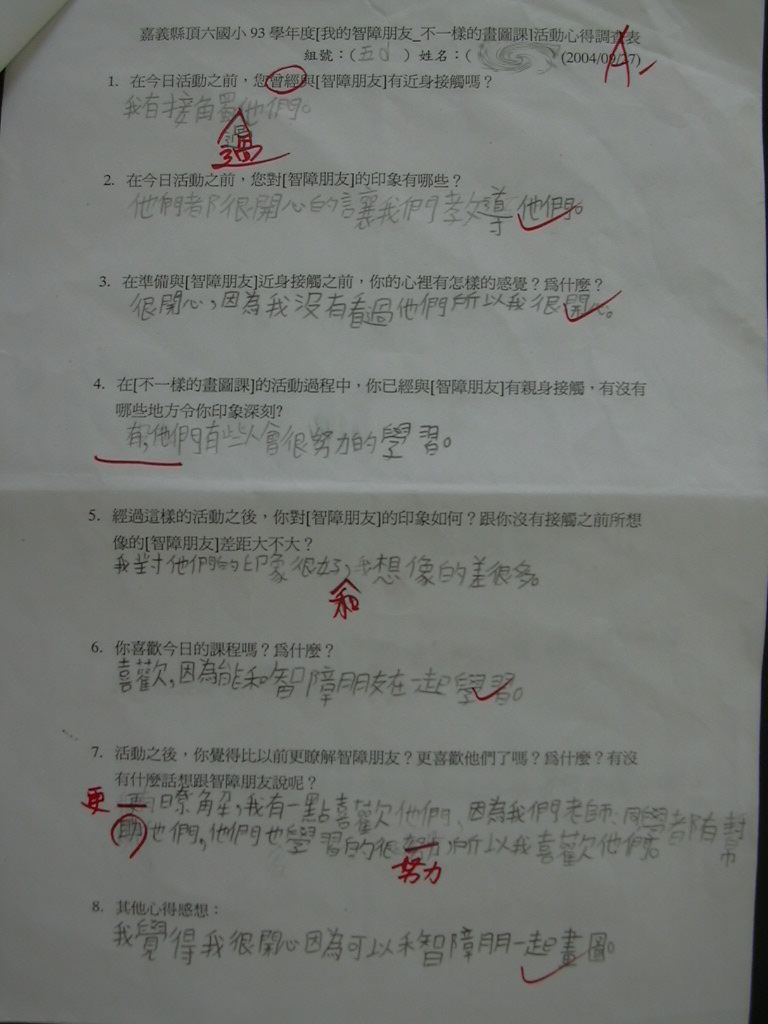 嘉義縣頂六國小 93 學年度[我的智障朋友_不一樣的畫圖課]活動心得調查表
A-
組號：(五 ) 姓名：( (2004/09/27)
1. 在今日活動之前，您曾經與[智障朋友]有近身接觸嗎？
我有接角蜀他們。
過
2. 在今日活動之前，您對[智障朋友]的印象有哪些？
他們都很開心的讓我們教導他們。
3. 在準備與[智障朋友]近身接觸之前，你的心裡有怎樣的感覺？為什麼？
很開心，因為我沒有看過他們所以我很開心。
4. 在[不一樣的畫圖課]的活動過程中，你已經與[智障朋友]有親身接觸，有沒有
哪些地方令你印象深刻?
有，他們有些人會很努力的學習。
5. 經過這樣的活動之後，你對[智障朋友]的印象如何？跟你沒有接觸之前所想
像的[智障朋友]差距大不大？
我對他們的印象很好，我想像的差很多。
和
6. 你喜歡今日的課程嗎？為什麼？
喜歡，因為能和智障朋友在一起學習。
7. 活動之後，你覺得比以前更瞭解智障朋友？更喜歡他們了嗎？為什麼？有沒
有什麼話想跟智障朋友說呢？
更 瞭解，我有一點喜歡他們、因為我們老師、同學都有幫
助他們，他們也學習的很 所以我喜歡他們。
努力
8. 其他心得感想：
我覺得我很開心因為可以和智障朋一起畫圖。